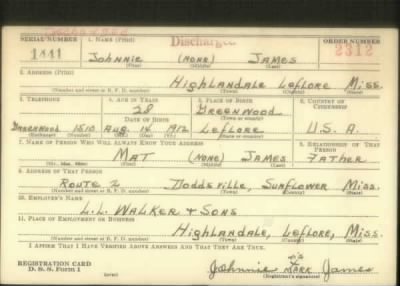 Discharged
SERIAL NUMBER 1. NAME (Print) ORDER NUMBER
1441 Johnnie (None) James 2312
(First) (Middle) (Last)
2. ADDRESS (Print)
Highlandale Leflore Miss.
(Number and street or R. F. D. number) (Town) (County) (State)
3. TELEPHONE 4. AGE IN YEARS 5. PLACE OF BIRTH 6. COUNTRY OF CITIZENSHIP
28 Greenwood
DATE OF BIRTH (Town or county)
Greenwood 1510 Aug. 14 1912 Leflore U.S.A.
(Exchange) (Number) (Mo.) (Day) (Yr.) (State or country)
7. NAME OF PERSON WHO WILL ALWAYS KNOW YOUR ADDRESS 8. RELATIONSHIP OF THAT PERSON
Mat (None) James Father
(Mr., Mrs., Miss) (First) (Middle) (Last)
9. ADDRESS OF THAT PERSON
Route 2 Doddsville, Sunflower Miss.
(Number and street or R. F. D. number) (Town) (County) (State)
10. EMPLOYER'S NAME
L.L. Walker & Sons
11. PLACE OF EMPLOYMENT OR BUSINESS
Highlandale, Leflore, Miss.
(Number and street or R. F. D. number) (Town) (County) (State)
I AFFIRM THAT I HAVE VERIFIED ABOVE ANSWERS AND THAT THEY ARE TRUE.
REGISTRATION CARD
D. S. S. FORM 1 (over)
Johnnie X Mark James
(Registrant's signature)